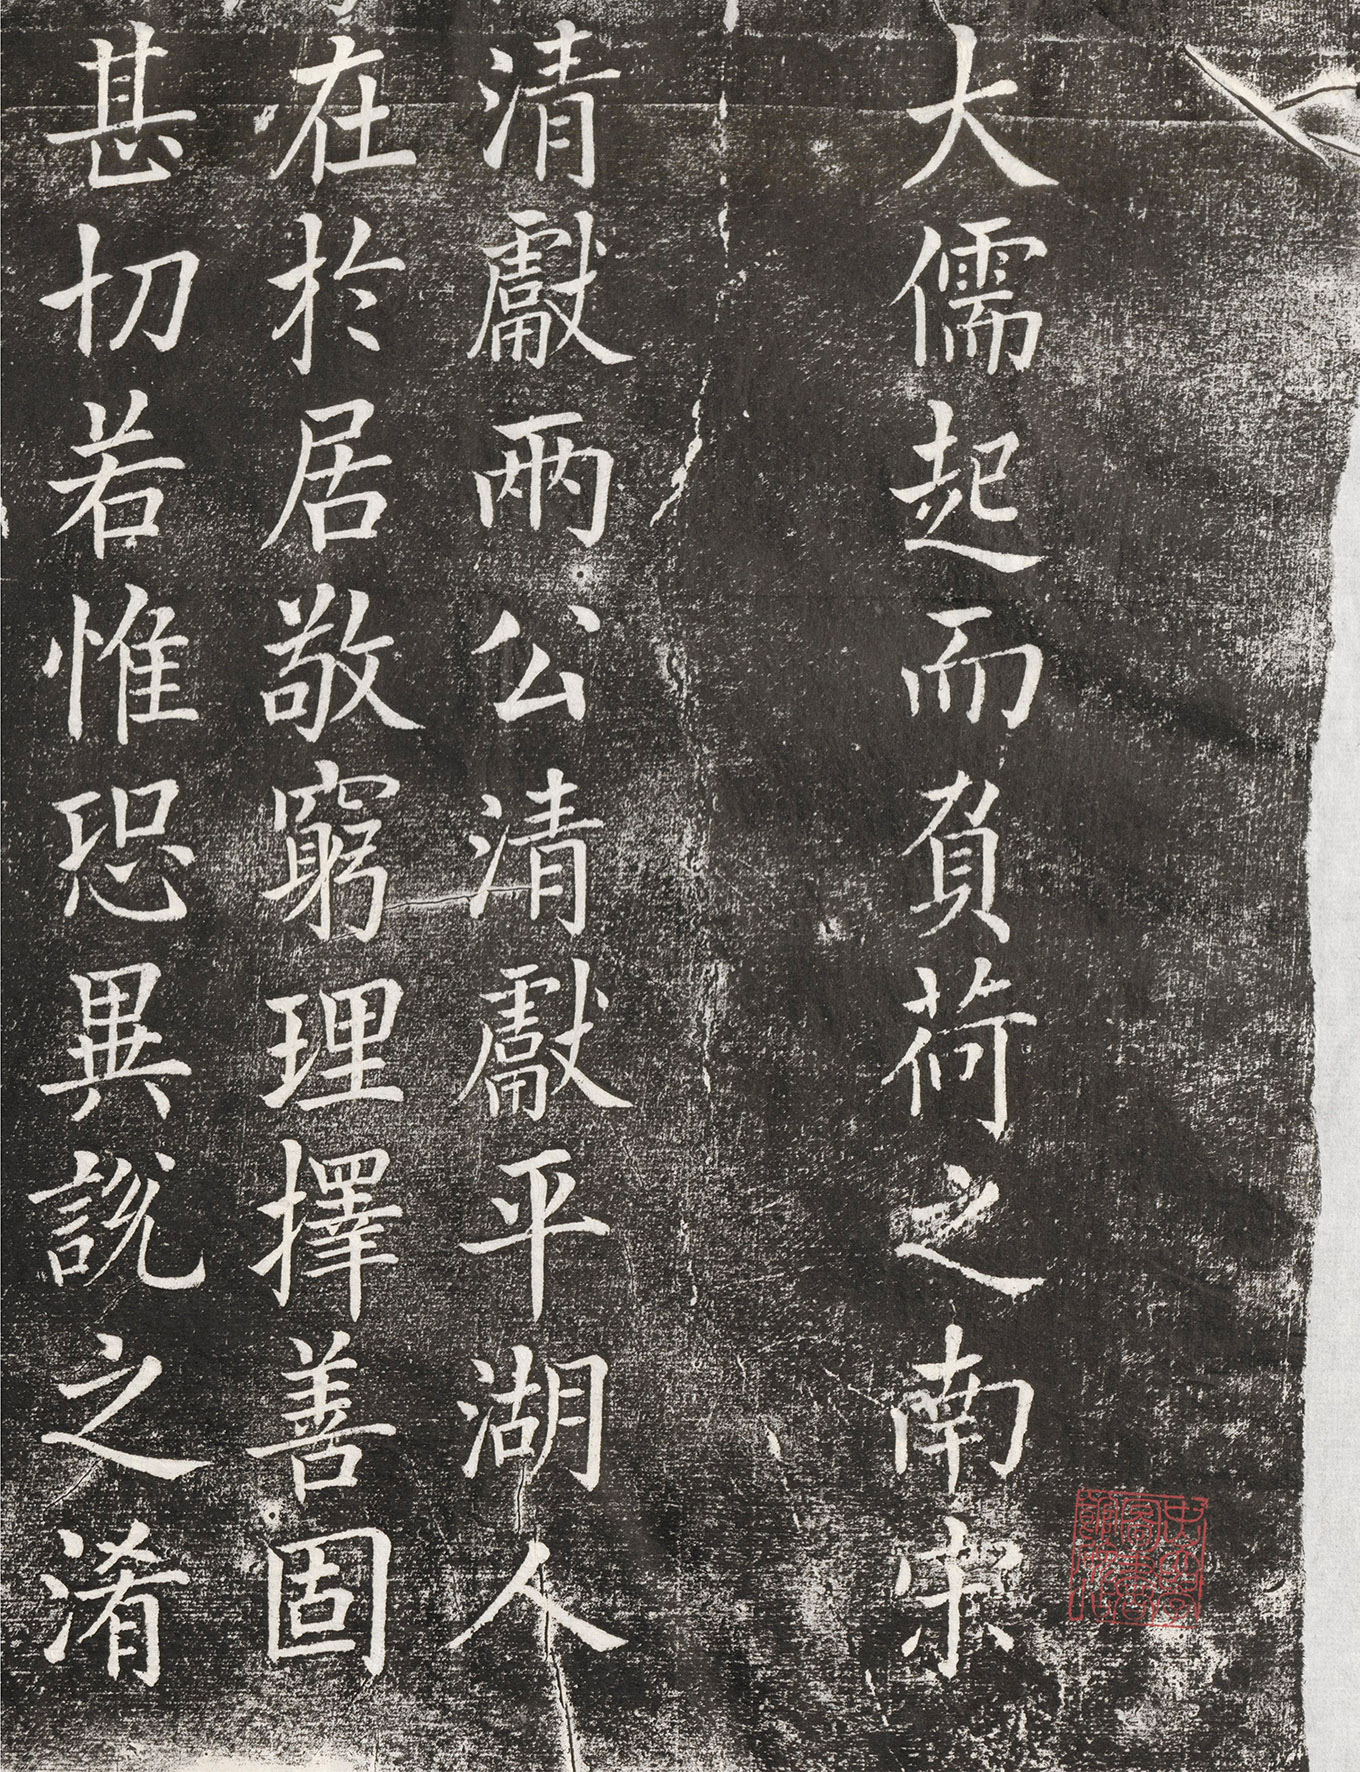 大儒起而負荷之南宋
清獻兩公清獻平湖人
在於居敬窮理擇善固
甚切若惟恐異說之淆